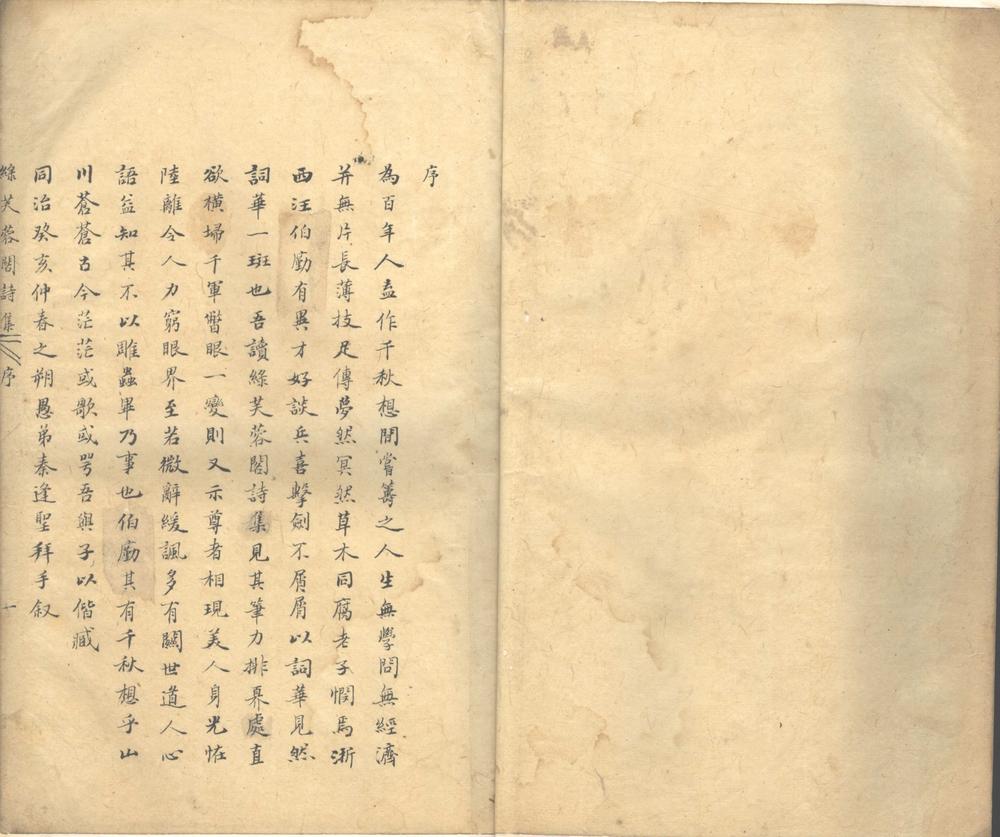 序
為百年人盍作千秋想間嘗籌之人生無學問無經濟
并無片長薄技足傳夢然冥然草木同腐老子憫焉浙
西汪伯勵有異才好談兵喜擊劍不屑屑以詞華見然
詞華一斑也吾讀綠芙蓉閣詩集見其筆力排奡處直
欲橫埽千軍瞥眼一變則又示尊者相現美人身光怪
陸離令人力窮眼界至若微辭緩諷多有關世道人心
語益知其不以雕蟲畢乃事也伯勵其有千秋想乎山
川蒼蒼古今茫茫或歌或咢吾與子以偕臧
同治癸亥仲春之朔愚弟秦逢聖拜手叙
綠芙蓉閣詩集 序 一